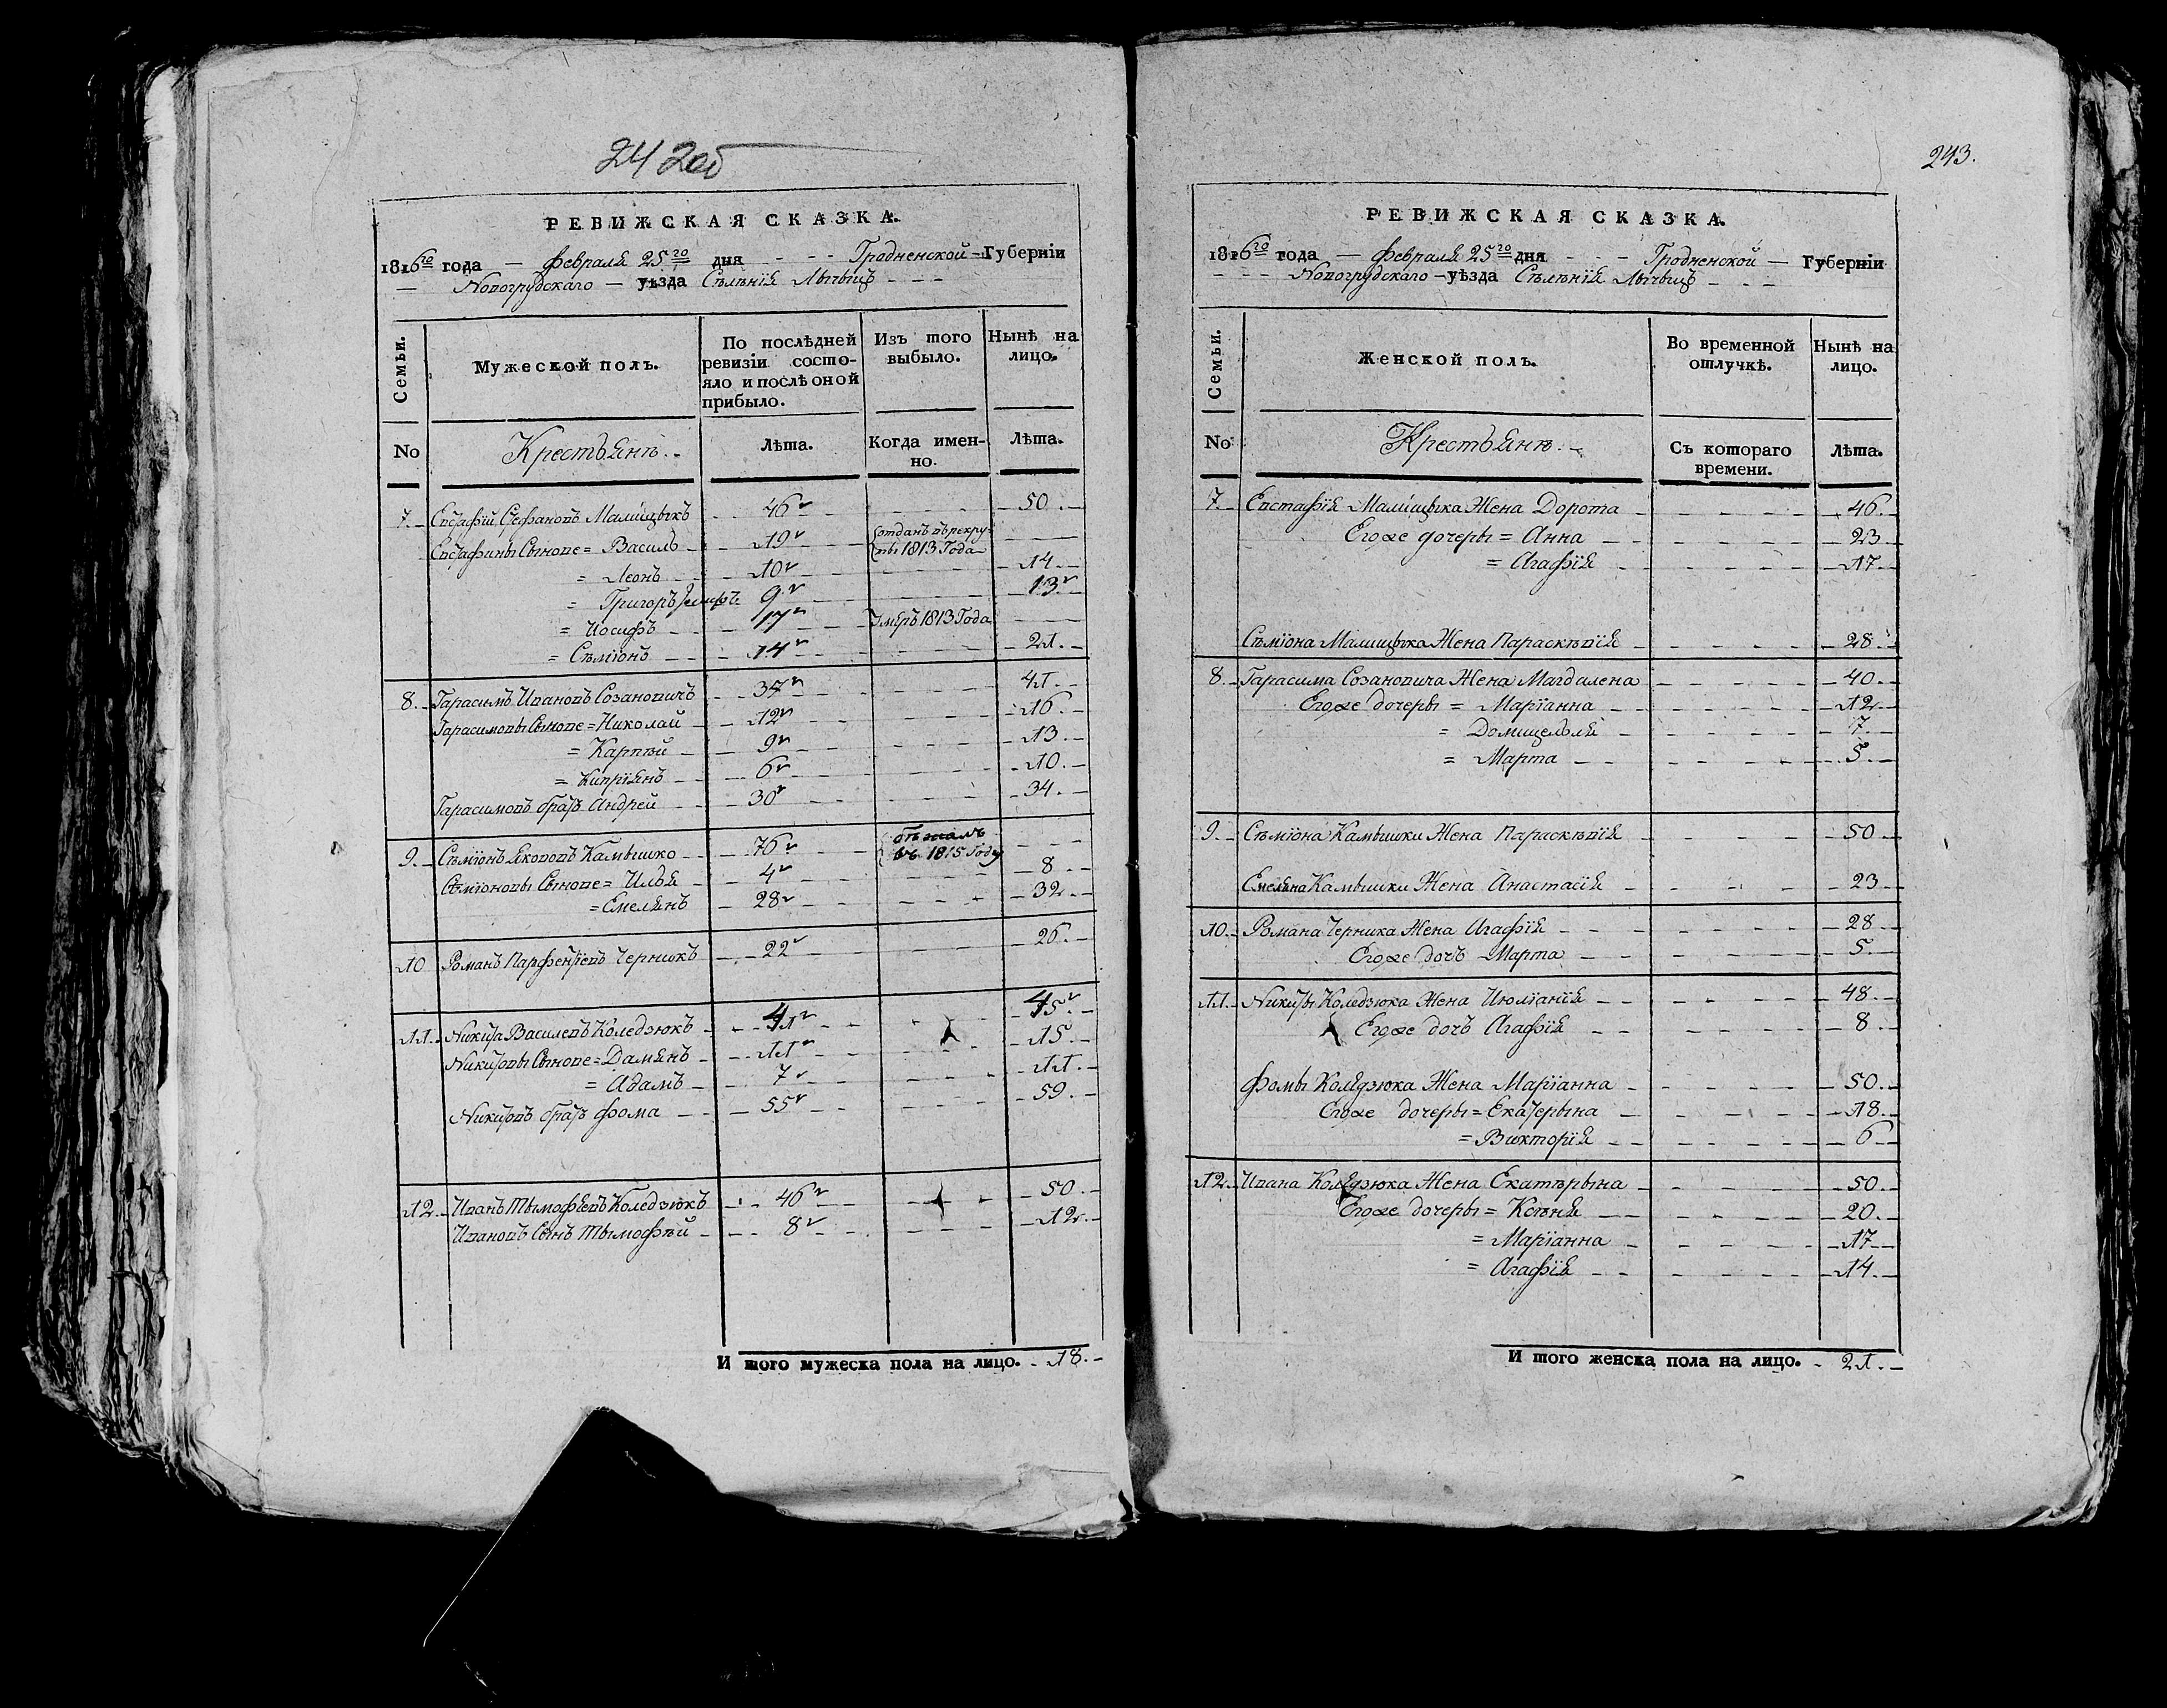 242 об
РЕВИЖСКАЯ СКАЗКА.
1816го года — Февраля 25го дня - - - Гродненской — Губерніи
— Новогрудскаго — уѣзда Сѣлѣнія Лычыцъ - - -
Семьи. Мужеской полъ. По послѣдней ревизіи состо- Изъ того Нынѣ на
яло и послѣ оной прибыло. выбыло. лицо.
No Крестьянѣ. Лѣта. Когда имен- Лѣта.
но.
7. Евстафій Стефановъ Малишъкъ 46 50
Евстафины Сынове = Василь 19 отданъ въ рекру-
ты 1813 Года
= Леонъ 10 14
= Григоръ 9 13
= Иосифъ 17 Умеръ 1813 Года
= Сѣміонъ 14 21
8. Гарасимъ Ивановъ Созановичъ 37 41
Гарасимовы Сынове = Николай 12 16
= Карпѣй 9 13
= Кипріянъ 6 10
Гарасимовъ братъ Андрей 30 34
9. Сѣміонъ Якововъ Камышко 76 бѣжалъ
въ 1815 Году
Сѣміоновы Сынове = Илья 4 8
= Емелянъ 28 32
10 Романъ Парфеніевъ Чернюкъ 22 26
11. Никита Василевъ Коледзюкъ 41 45
Никитовы Сынове = Дамянъ 11 15
= Адамъ 7 11
Никитовъ братъ Фома 55 59
12. Иванъ Тымофѣевъ Коледзюкъ 46 50
Ивановъ Сынъ Тымофѣй 8 12
И того мужеска пола на лицо. 18.
243.
РЕВИЖСКАЯ СКАЗКА.
1816го года — Февраля 25го дня - - - Гродненской — Губерніи
- - - Новогрудскаго — уѣзда Сѣлѣнія Лычыцъ - - -
Семьи. Женской полъ. Во временной Нынѣ на
отлучкѣ. лицо.
No Крестьянѣ. Съ котораго Лѣта.
времени.
7 Евстафія Малишъка Жена Дорота 46
Егоже дочеры = Анна 23
= Агафія 17
Сѣміона Малишъка Жена Параскѣвія 28
8. Гарасима Созановича Жена Магдалена 40
Егоже дочеры = Маріанна 12
= Домицелья 7
= Марта 5
9. Сѣміона Камышки Жена Параскѣвія 50
Емеляна Камышки Жена Анастасія 23
10. Романа Черника Жена Агафія 28
Егоже дочъ Марта 5
11. Никиты Коледзюка Жена Июліанія 48
Егоже дочъ Агафія 8
Фомы Колядзюка Жена Маріанна 50
Егоже дочеры = Екатерына 18
= Викторія 6
12. Ивана Колядзюка Жена Екатѣрына 50
Егоже дочеры = Ксѣня 20
= Маріанна 17
= Агафія 14
И того женска пола на лицо. 21.